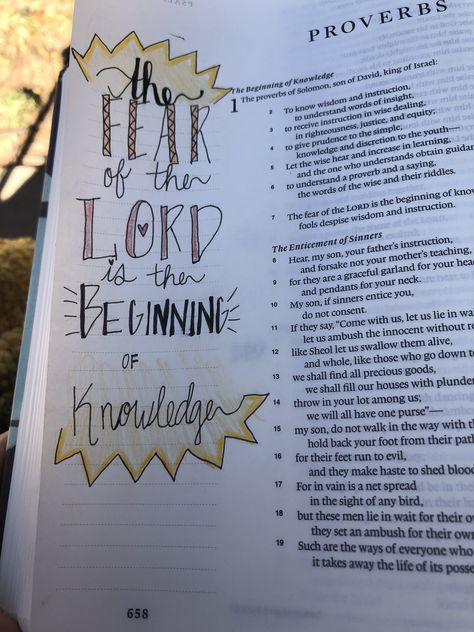 the
FEAR
of the
LORD
is the
BEGINNING
OF
Knowledge
658
PROVERBS
The Beginning of Knowledge
1 The proverbs of Solomon, son of David, king of Israel:
2 To know wisdom and instruction,
to understand words of insight,
3 to receive instruction in wise dealing,
in righteousness, justice, and equity;
4 to give prudence to the simple,
knowledge and discretion to the youth—
5 Let the wise hear and increase in learning,
and the one who understands obtain guidan
6 to understand a proverb and a saying,
the words of the wise and their riddles.
7 The fear of the LORD is the beginning of know
fools despise wisdom and instruction.
The Enticement of Sinners
8 Hear, my son, your father's instruction,
and forsake not your mother's teaching,
9 for they are a graceful garland for your head
and pendants for your neck.
10 My son, if sinners entice you,
do not consent.
11 If they say, "Come with us, let us lie in wai
let us ambush the innocent without re
12 like Sheol let us swallow them alive,
and whole, like those who go down to
13 we shall find all precious goods,
we shall fill our houses with plunder
14 throw in your lot among us;
we will all have one purse"—
15 my son, do not walk in the way with th
hold back your foot from their path
16 for their feet run to evil,
and they make haste to shed blood
17 For in vain is a net spread
in the sight of any bird,
18 but these men lie in wait for their o
they set an ambush for their own
19 Such are the ways of everyone who
it takes away the life of its posse